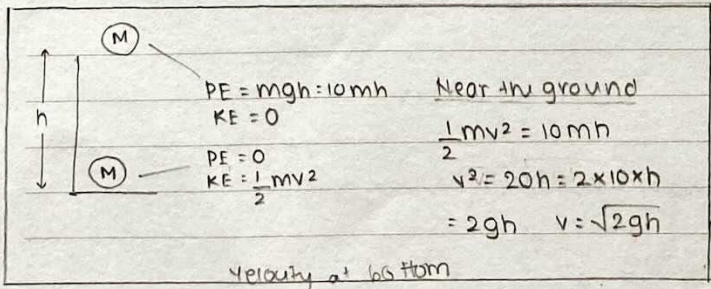 M
h
PE = mgh = 10mh
KE = 0
M
PE = 0
KE = 1/2 mv2
Near the ground
1/2 mv2 = 10mh
v2 = 20h = 2×10×h
= 2gh v = √2gh
Velocity at bottom